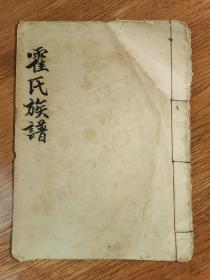 霍氏族譜